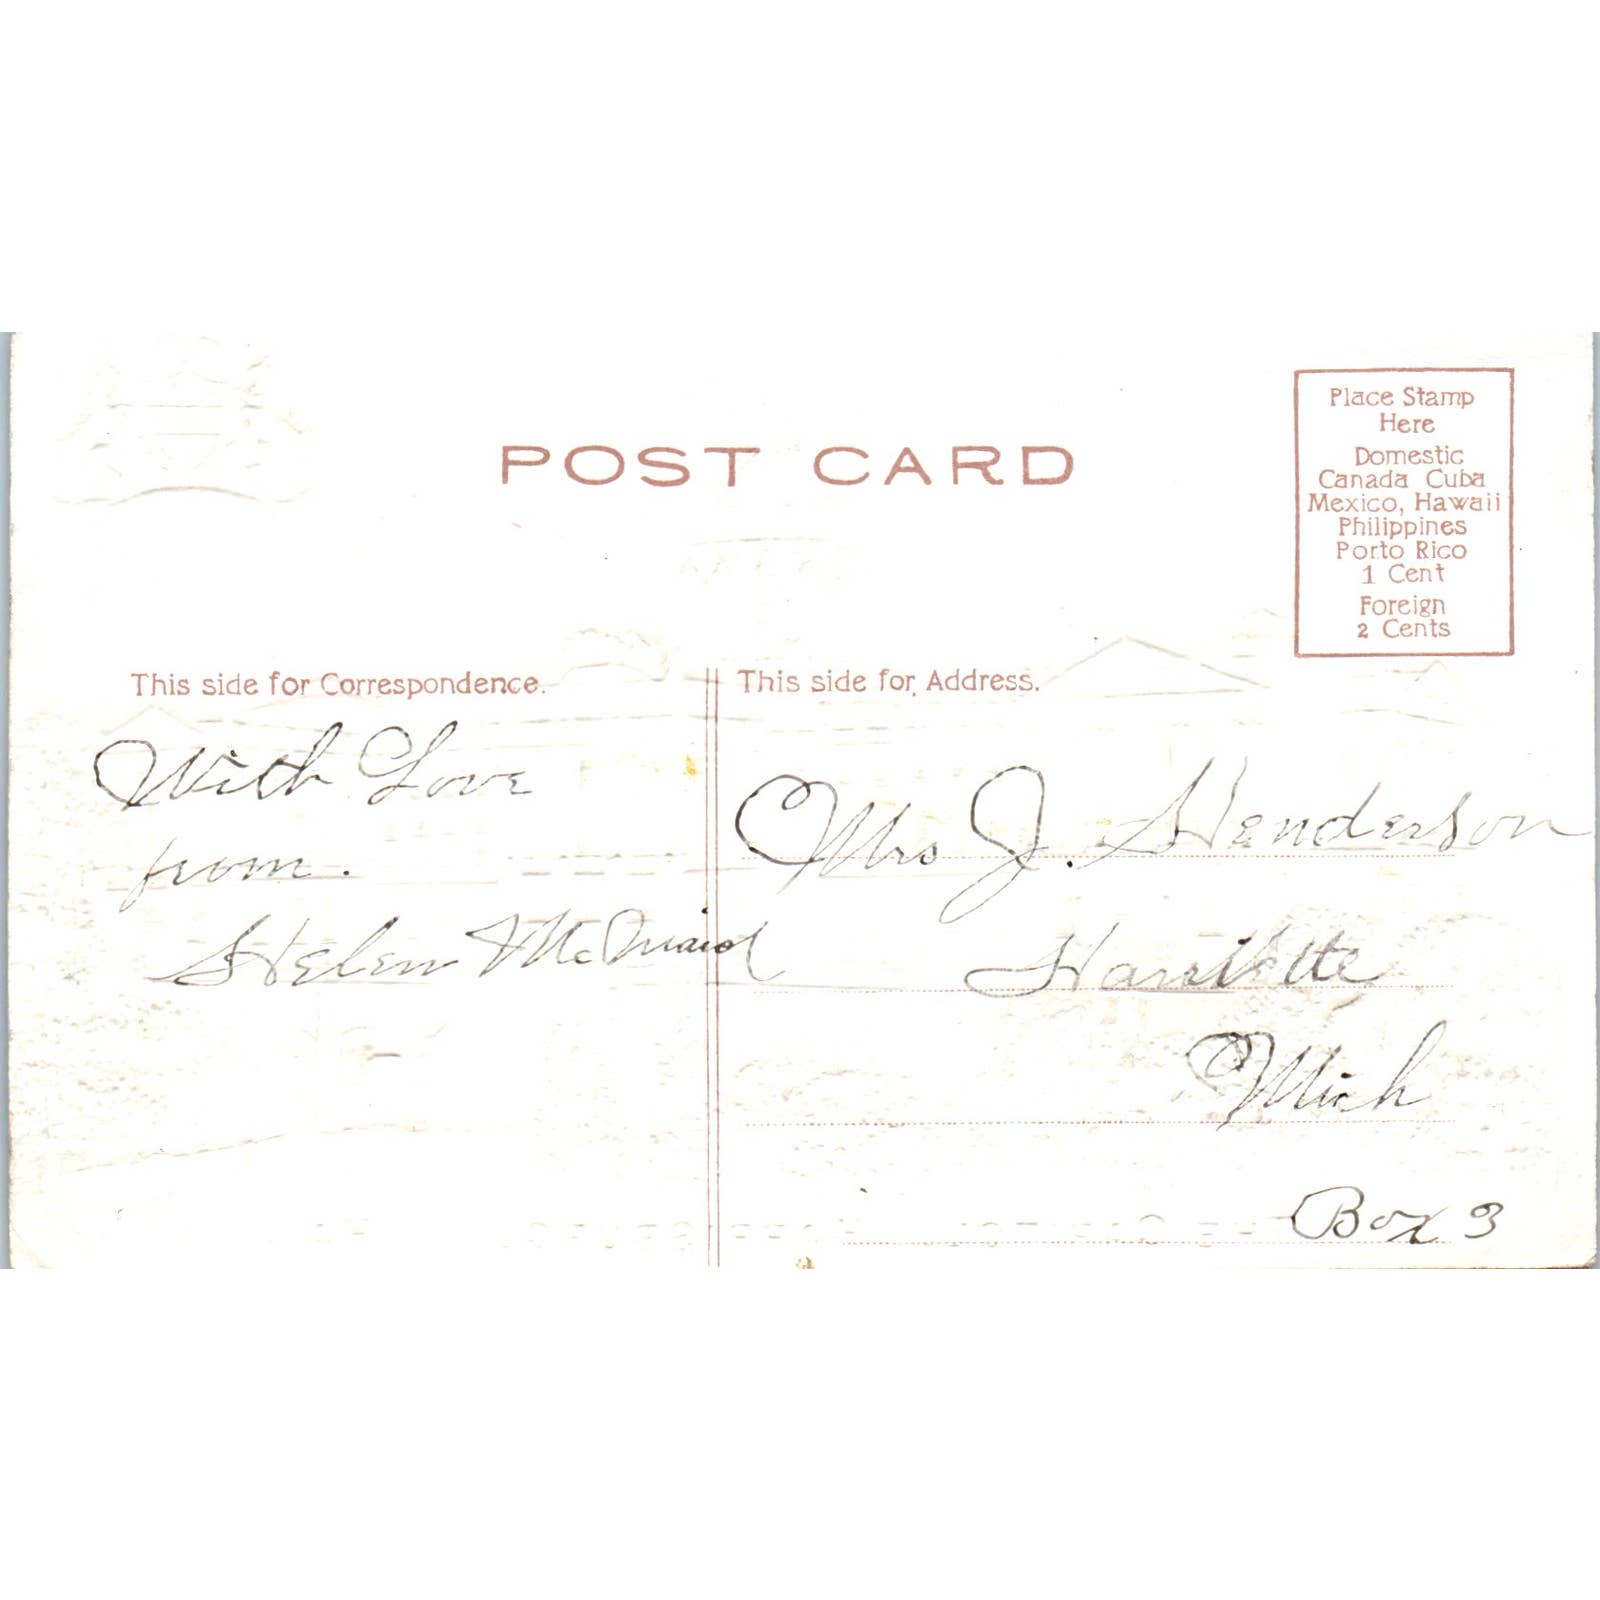 POST CARD
Place Stamp
Here
Domestic
Canada Cuba
Mexico, Hawaii
Philippines
Porto Rico
1 Cent
Foreign
2 Cents
This side for Correspondence.
This side for Address.
With Love
from.
Helen
Mrs J. Henderson
Mich
Box 3